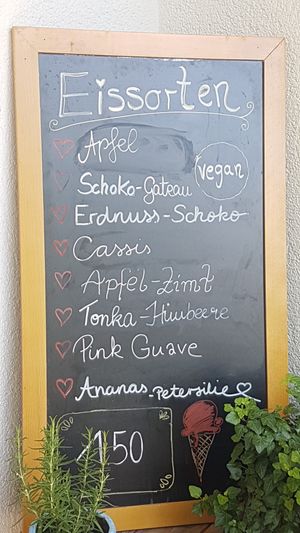 Eissorten
Apfel
vegan
Schoko-Gateau
Erdnuss-Schoko
Cassis
Apfel-Zimt
Tonka-Himbeere
Pink Guave
Ananas-Petersilie
1,50